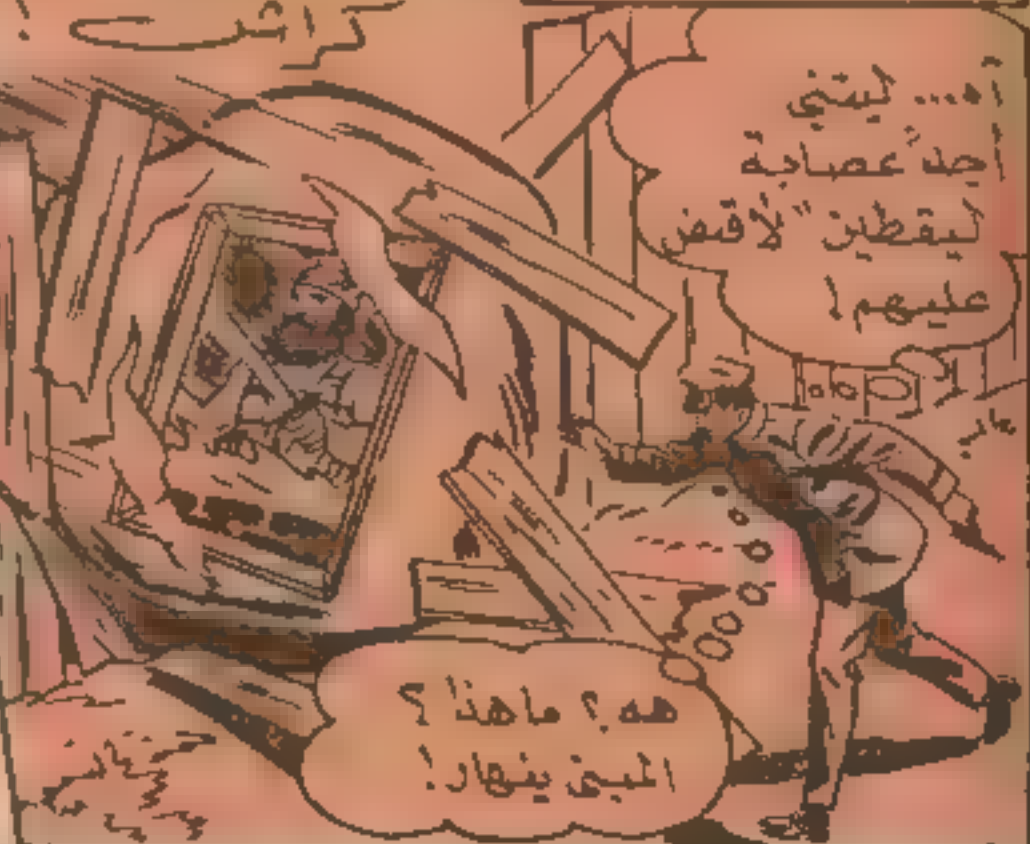 آه... ليتني
صد عصابة
ليقطين" لأقبض
عليهم!
هه؟ ما هذا؟
المبنى ينهار!